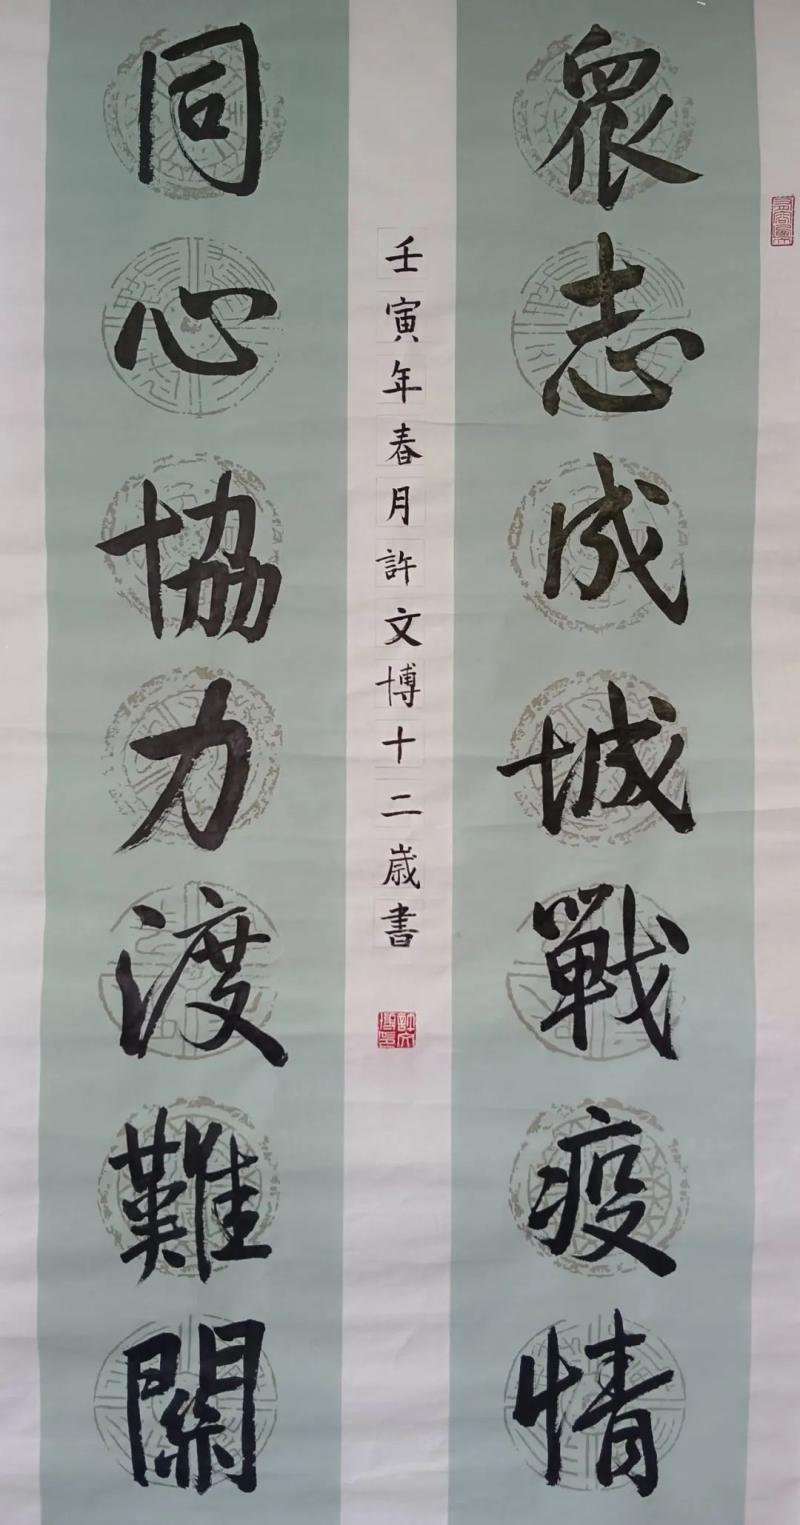 眾志成城戰疫情
同心協力渡難關
壬寅年春月許文博十二歲書